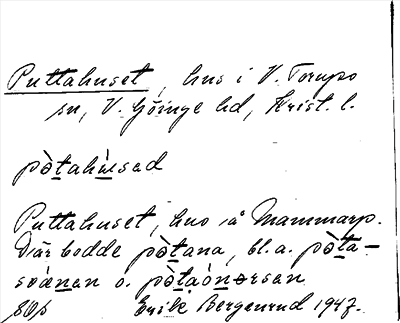 Puttahuset, hus i V. Torups
sn, V. Göinge hd, Krist. l.
pòtahùsad
Puttahuset, hus i å Mammarp.
Där bodde pòtana, bl.a. pòta-
svänen o. pòtaònorsen
80/s Erik Bergenrud 1947.